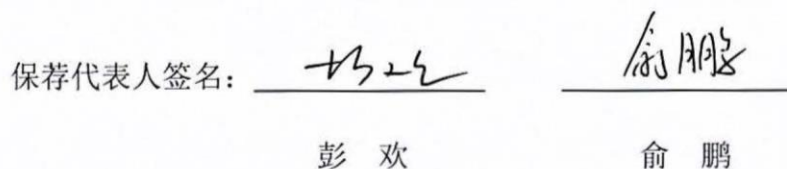 保荐代表人签名：俞鹏
彭 欢 俞 鹏